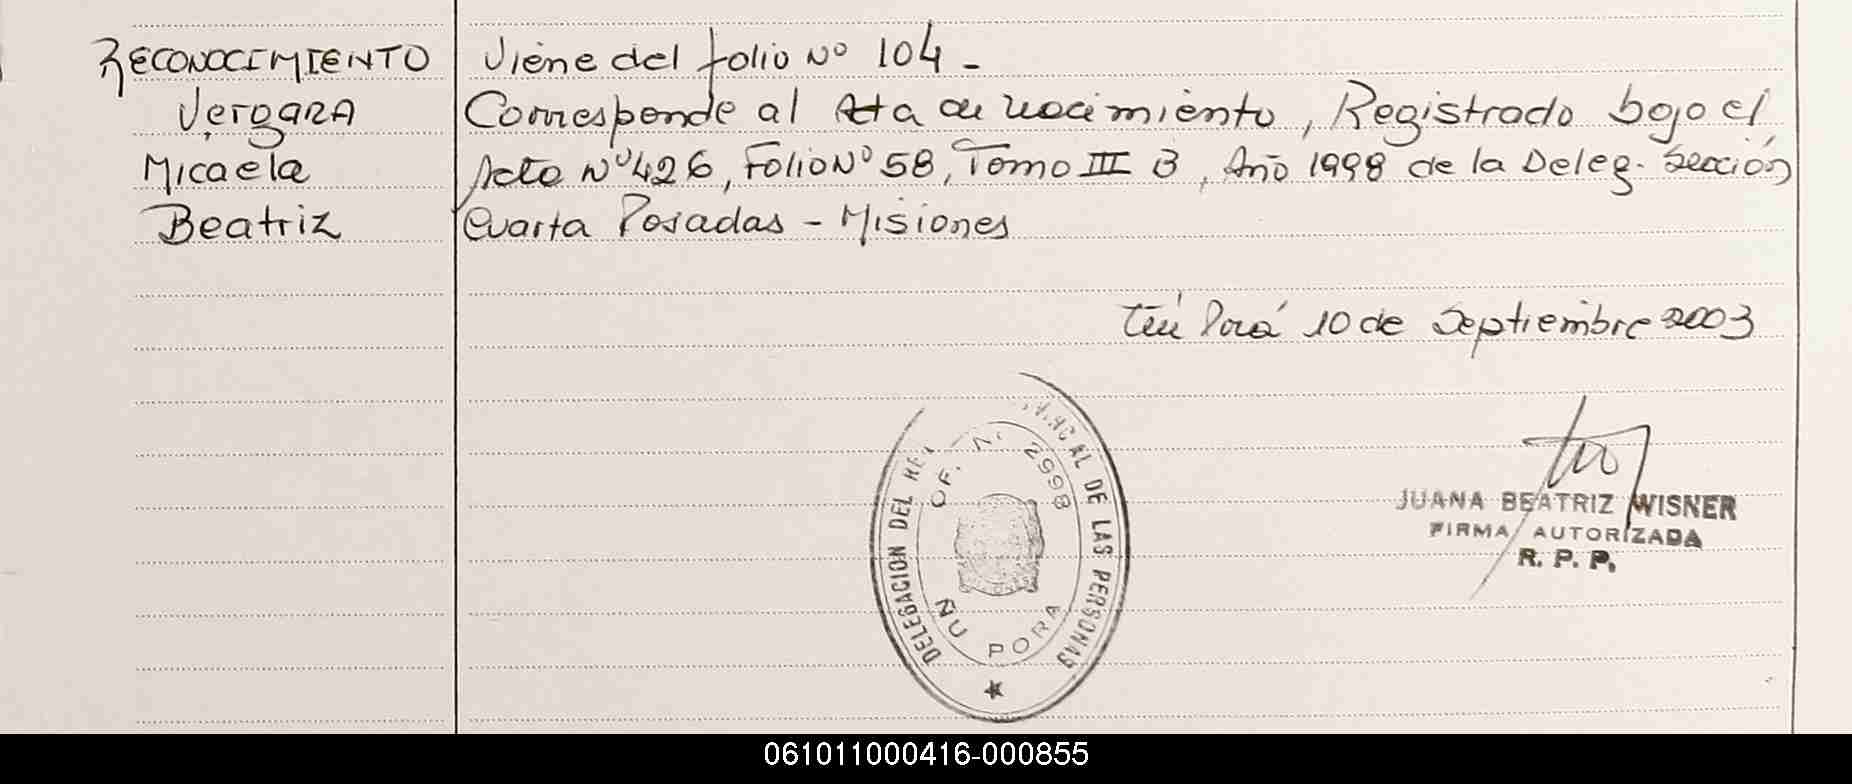 RECONOCIMIENTO
Vergara
Micaela
Beatriz
Viene del folio Nº 104 -
Corresponde al Acta de nacimiento, Registrado bajo el
Acta Nº 426, Folio Nº 58, Tomo III B, Año 1998 de la Deleg. Sección
Cuarta Posadas - Misiones
Porá 10 de Septiembre 2003
DELEGACION DEL VINCAL DE LAS PERSONAS
OF. Nº 2998
ÑU PORA
JUANA BEATRIZ WISNER
FIRMA AUTORIZADA
R. P. P.
061011000416-000855